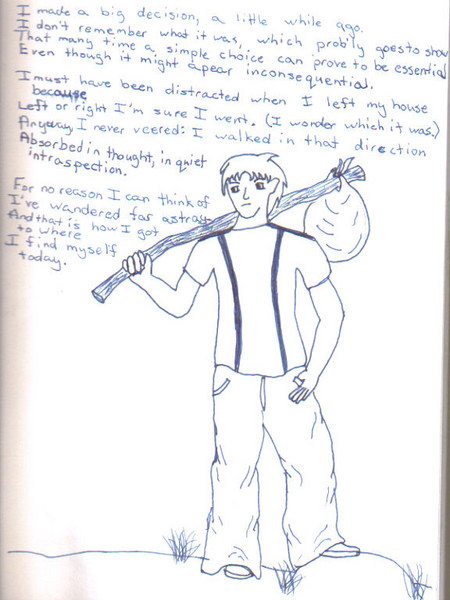 I made a big decision, a little while ago.
I don't remember what it was, which prob'ly goes to show
That many time a simple choice can prove to be essential
Even though it might apear inconsequential.
I must have been distracted when I left my house
because
Left or right I'm sure I went. (I wonder which it was.)
Anyway I never veered: I walked in that direction
Absorbed in thought, in quiet
intraspection.
For no reason I can think of
I've wandered far astray
And that is how I got
to where
I find myself
today.